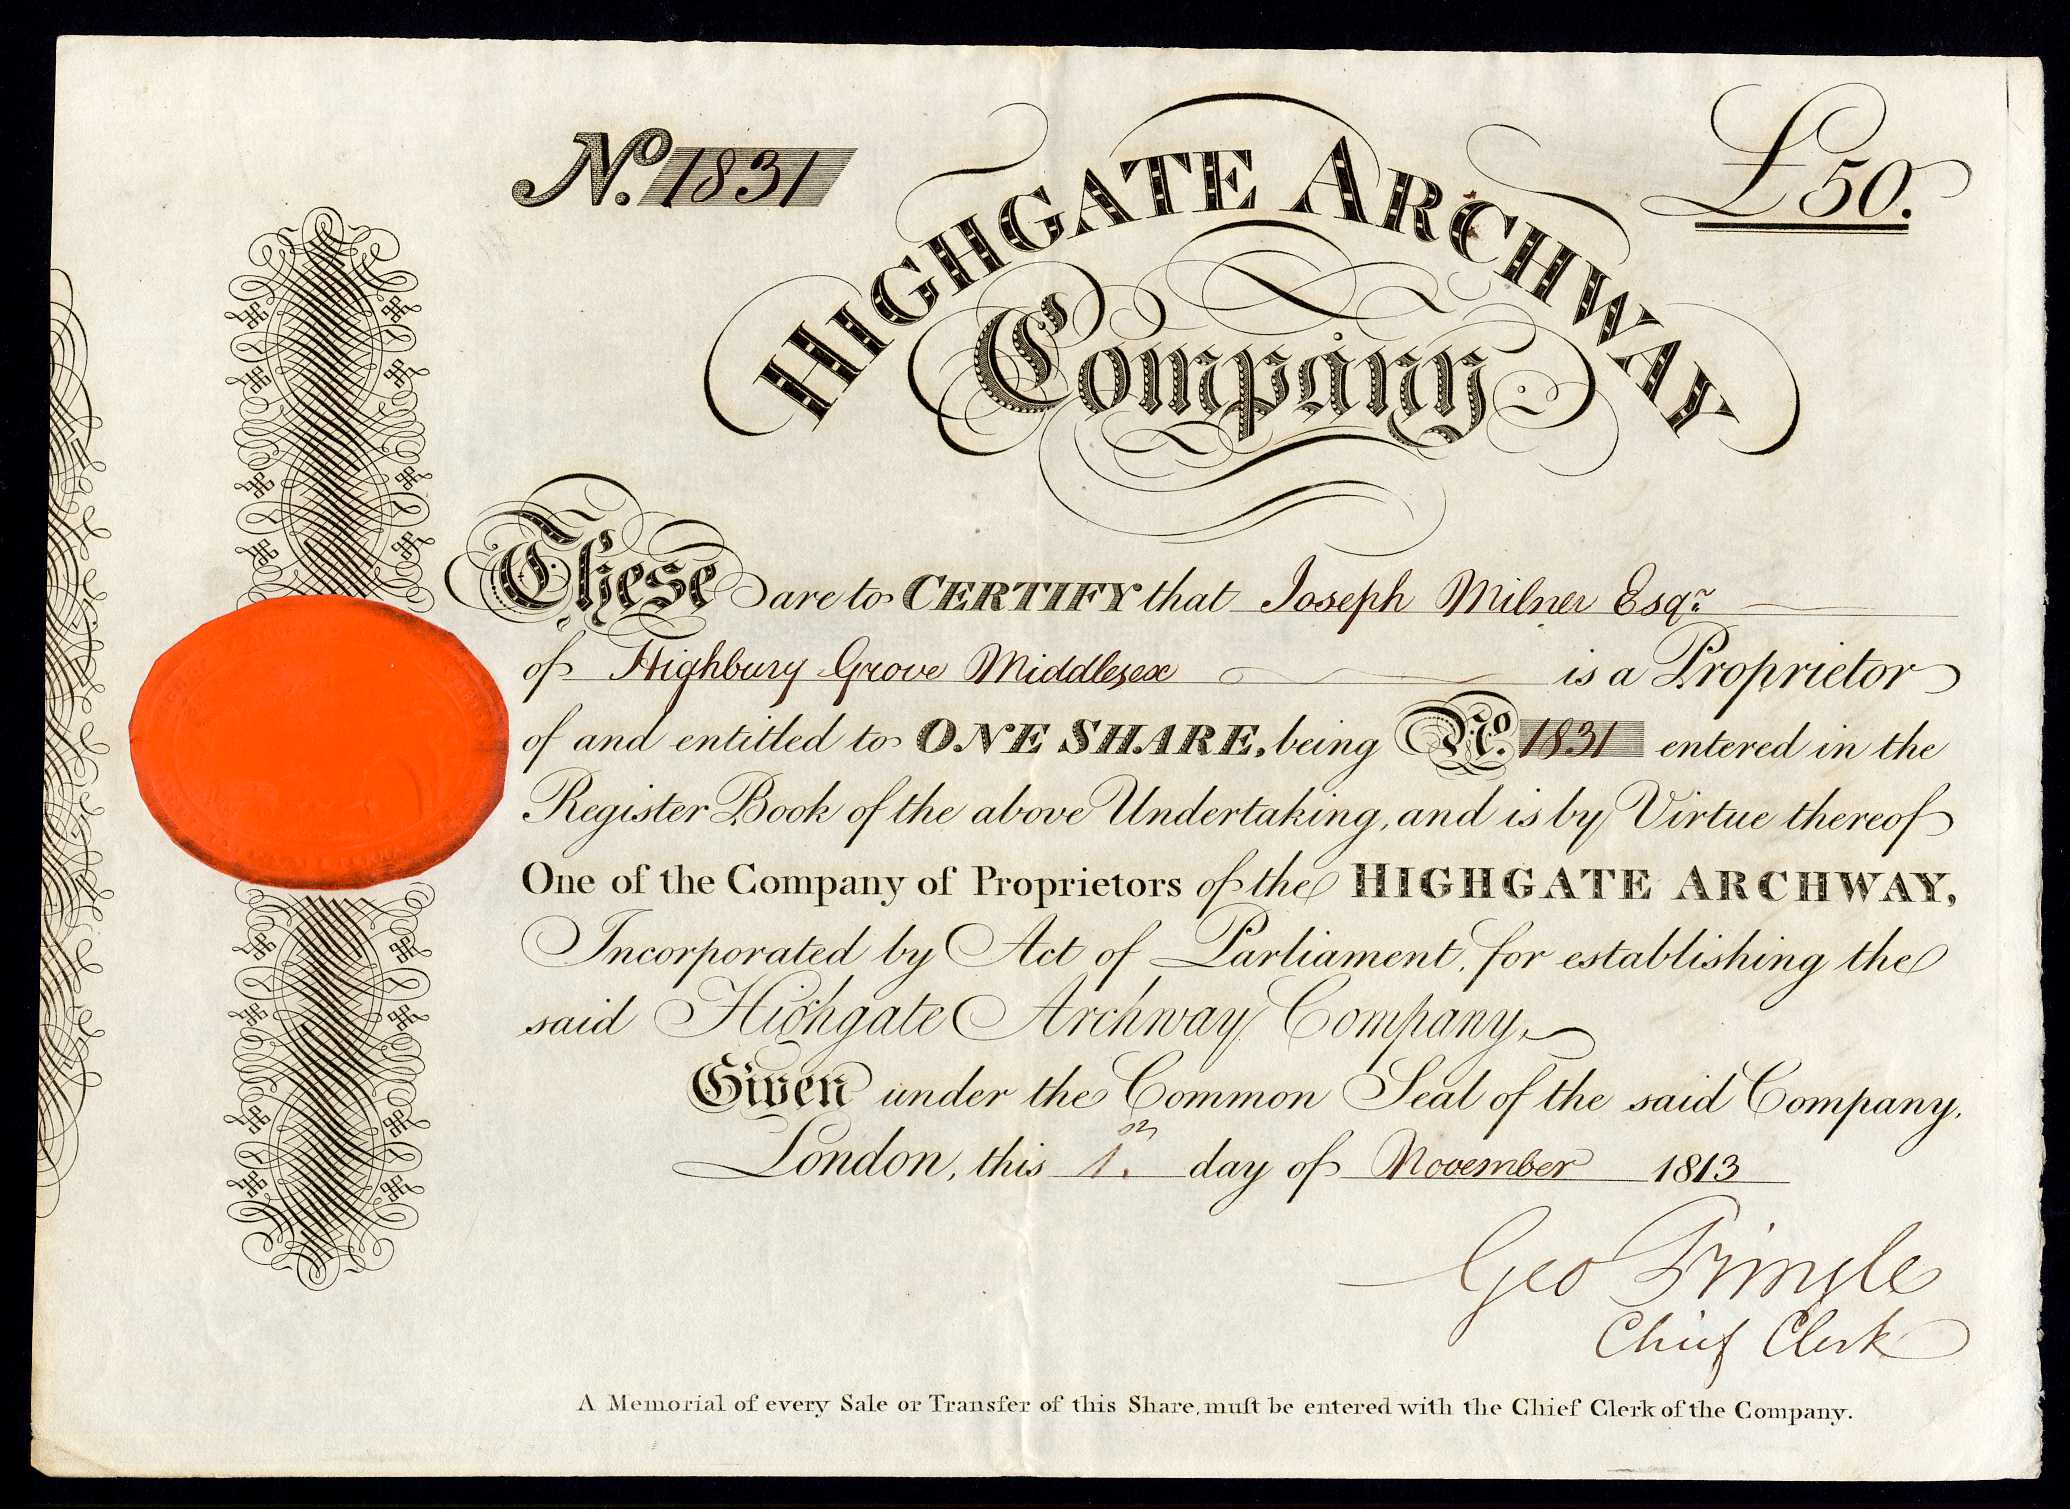 No. 1831
£50.
HIGHGATE ARCHWAY
Company.
These are to CERTIFY that Joseph Milner Esqr.
of Highbury Grove Middlesex is a Proprietor
of and entitled to ONE SHARE, being No. 1831 entered in the
Register Book of the above Undertaking, and is by Virtue thereof
One of the Company of Proprietors of the HIGHGATE ARCHWAY,
Incorporated by Act of Parliament, for establishing the
said Highgate Archway Company.
Given under the Common Seal of the said Company,
London, this 1st day of November 1813
Geo Pringle
Chief Clerk
A Memorial of every Sale or Transfer of this Share, muſt be entered with the Chief Clerk of the Company.